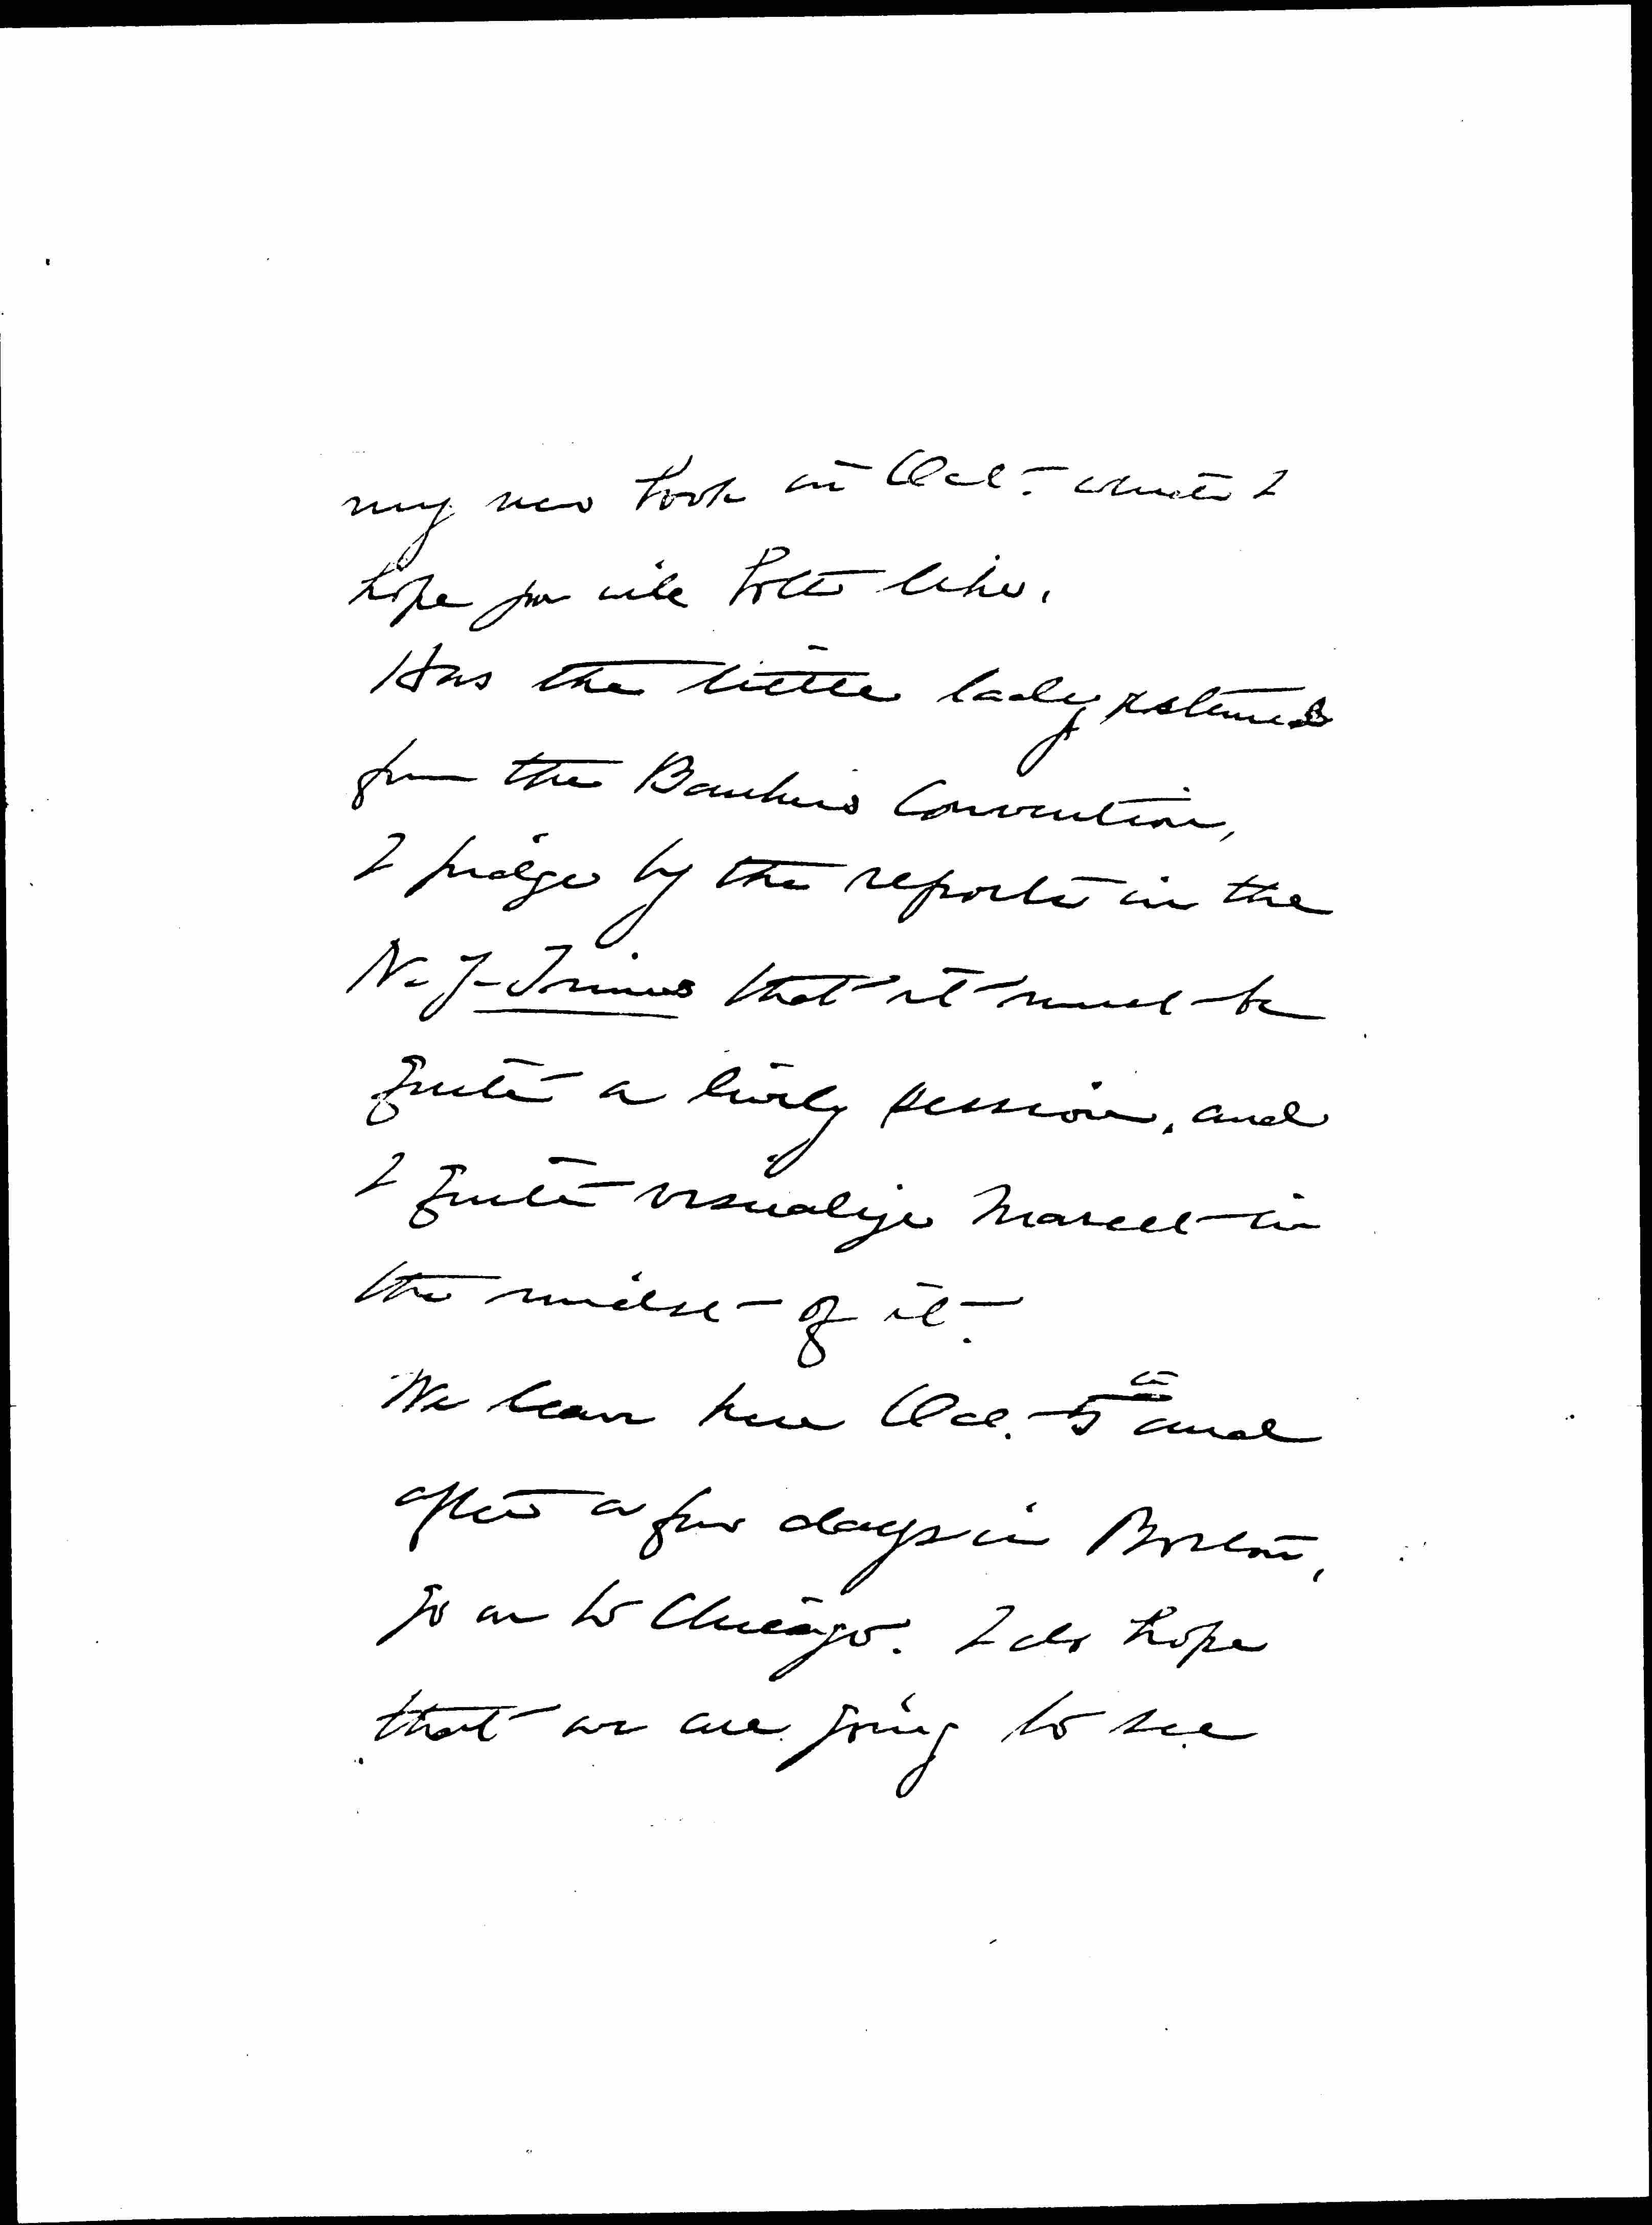 my new book in Oct. which I
hope you will both like.
Has the little lady returned
from the Bankers Convention,
I judge by the reports in the
N.Y. Times that it must be
quite a lively session, and
I quite visualize Marcel in
the midst of it.
We leave here Oct. 5th and
after a few days in Boston,
go on to Chicago. I do hope
that we are going to see